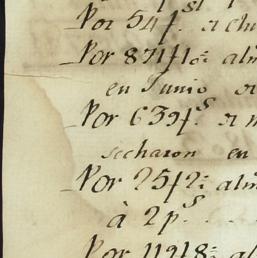 Por 54f
Por 871f1o: alm
en Junio
Por 639f s
secharon en
Por 25f2: alm
à 2 p s
Por 112f8: al